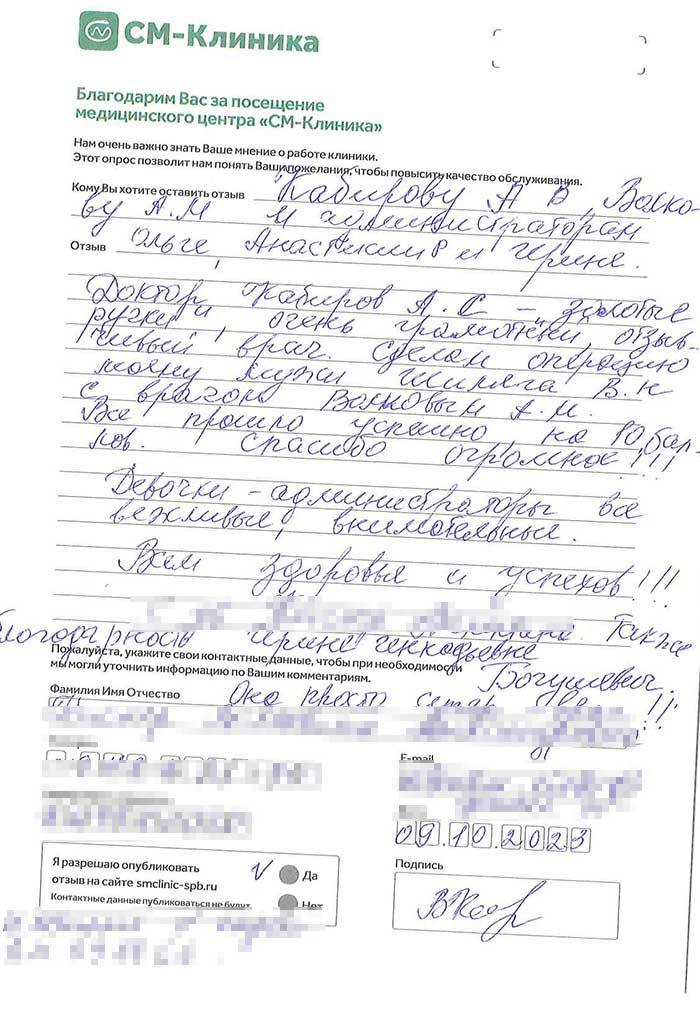 СМ-Клиника
Благодарим Вас за посещение
медицинского центра «СМ-Клиника»
Нам очень важно знать Ваше мнение о работе клиники.
Этот опрос позволит нам понять Ваши пожелания, чтобы повысить качество обслуживания.
Кому Вы хотите оставить отзыв Кабирову А В, Волко-
ву А.М и администраторам
Отзыв Ольге, Анастасии и Ирине.
Доктор Кабиров А. С – „золотые
ручки", очень грамотный, отзыв-
чивый врач. Сделал операцию
моему мужу Шиляга В.Н
с врагом Волковым А.М.
Все прошло успешно, на 10 бал-
лов. Спасибо огромное!!!
Девочки – администраторы все
вежливые, внимательные.
Всем здоровья и успехов!!!
Также
благодарность Ирине Генадьевне
Пожалуйста, укажите свои контактные данные, чтобы при необходимости
мы могли уточнить информацию по Вашим комментариям.
Богушевич.
Фамилия Имя Отчество Она просто !!
E-mail
09.10.2023
Я разрешаю опубликовать
отзыв на сайте smclinic-spb.ru
V Да
Контактные данные публиковаться не будут.
Нет
Подпись